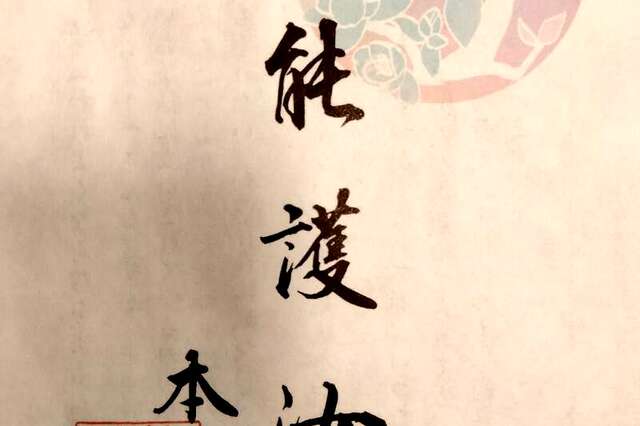 能護
本